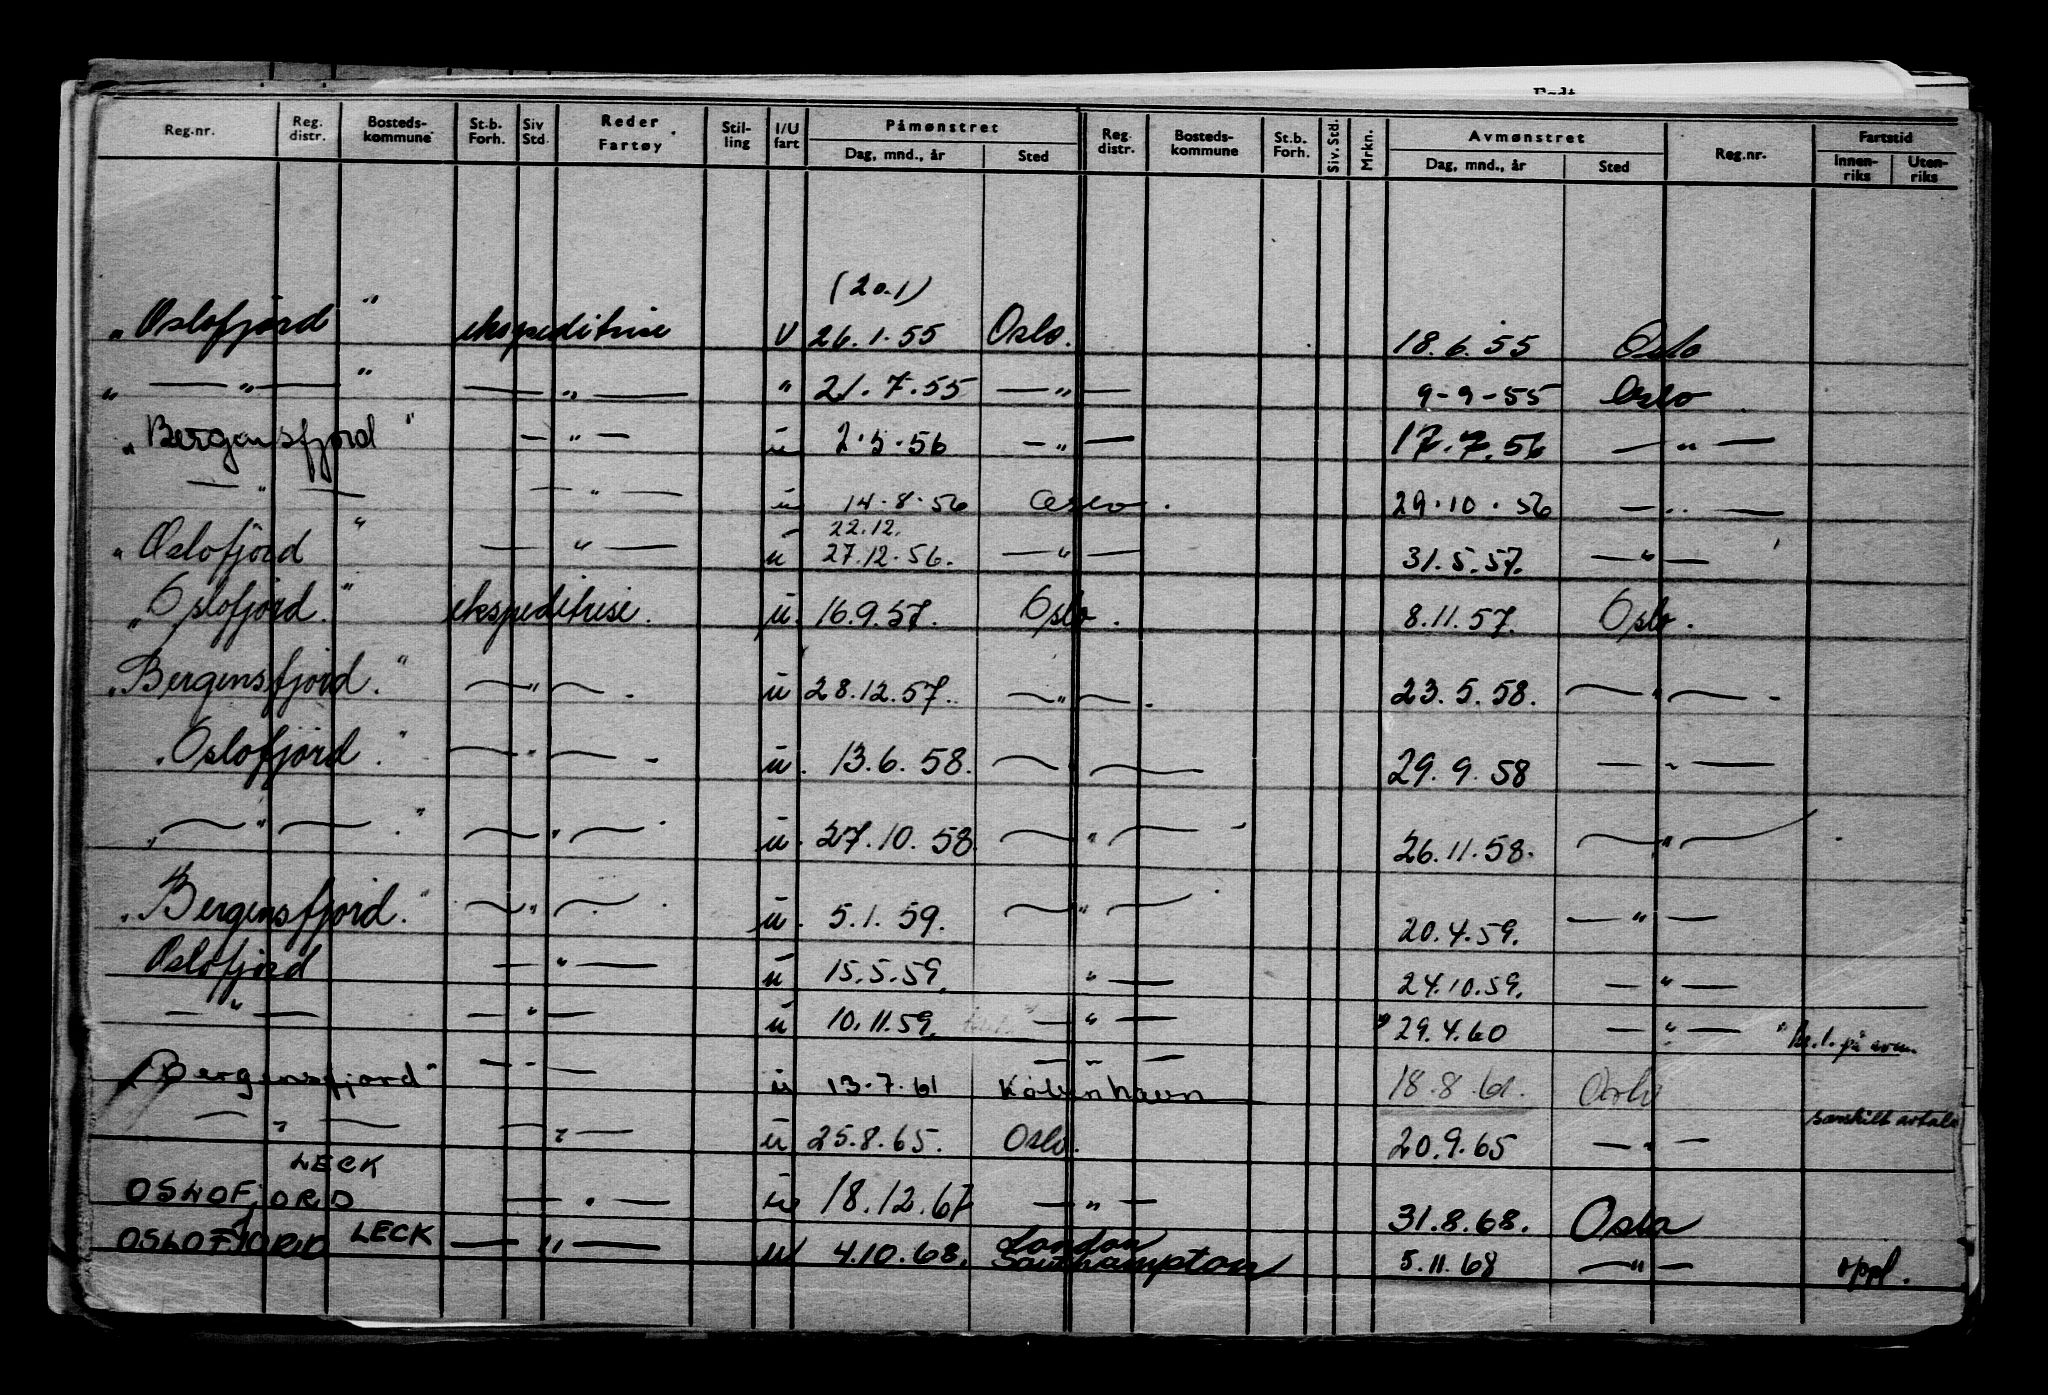 Født
Reg.nr. Reg. distr. Bosteds-kommune St.b. Forh. Siv Std. Reder Fartøy Stil-ling I/U fart Påmønstret Dag, mnd., år Sted Reg. distr. Bosteds-kommune St.b. Forh. Siv. Std. Mrkn. Avmønstret Dag, mnd., år Sted Reg.nr. Fartstid Innen-riks Uten-riks
(20.1)
"Oslofjord" ekspeditrise U 26.1.55 Oslo. 18.6.55 Oslo
" — " — " — " — " 21.7.55 — " — 9-9-55 Oslo
"Bergensfjord" — " — u 2.5.56 — " — 17.7.56 — " —
— " — — " — u 14.8.56 Oslo. 29.10.56 — " —
22.12.
"Oslofjord" — " — u 27.12.56. — " — 31.5.57. — " —
"Oslofjord." ekspeditrise. u. 16.9.57. Oslo. 8.11.57. Oslo.
"Bergensfjord." — " — . u 28.12.57. — " — . 23.5.58. — " — .
"Oslofjord." — " — . u. 13.6.58. — " — 29.9.58 — " —
" — " — ." — " — . u. 27.10.58. — " — . 26.11.58. — " —
"Bergensfjord." — " — . u. 5.1.59. — " — . 20.4.59. — " —
Oslofjord — " — u 15.5.59. " — 24.10.59. — " —
— " — — " — u 10.11.59. — " — 29.4.60 — " — på
"Bergensfjord" — " — u 13.7.61 København 18.8.61. Oslo
særskilt avtale
— " — — " — u 25.8.65. Oslo. 20.9.65 — " —
LECK
OSLOFJORD — " — u 18.12.67 — " — 31.8.68. Oslo
OSLOFJORD LECK — " — u 4.10.68. London Southampton 5.11.68 — " — oppl.